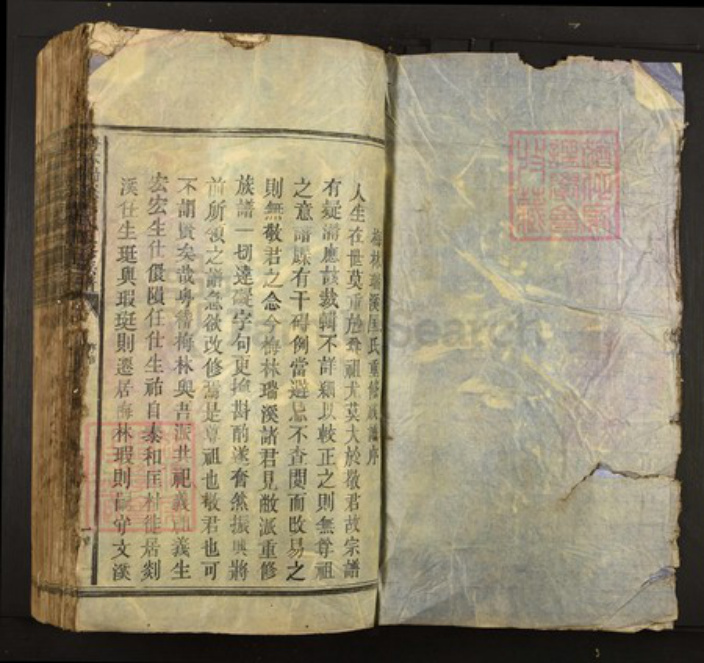 梅林瑞溪匡氏重修族譜序
人生在世莫重於尊祖尤莫大於敬君故宗譜
有疑滯應該裁輯不詳纇以較正之則無尊祖
之意譜牒有干碍例當避忌不查閱而改易之
則無敬君之念今梅林瑞溪諸君見敝派重修
族譜一切違礙字句更換斟酌遂奮然振興將
前所領之譜急欲改修焉是尊祖也敬君也可
不謂賢矣哉粤稽梅林與吾派共祀義和義生
宏宏生仕儇隕任仕生祐自泰和匡村徙居剡
溪仕生珽與瑕珽則遷居梅林瑕則留守文溪
Search